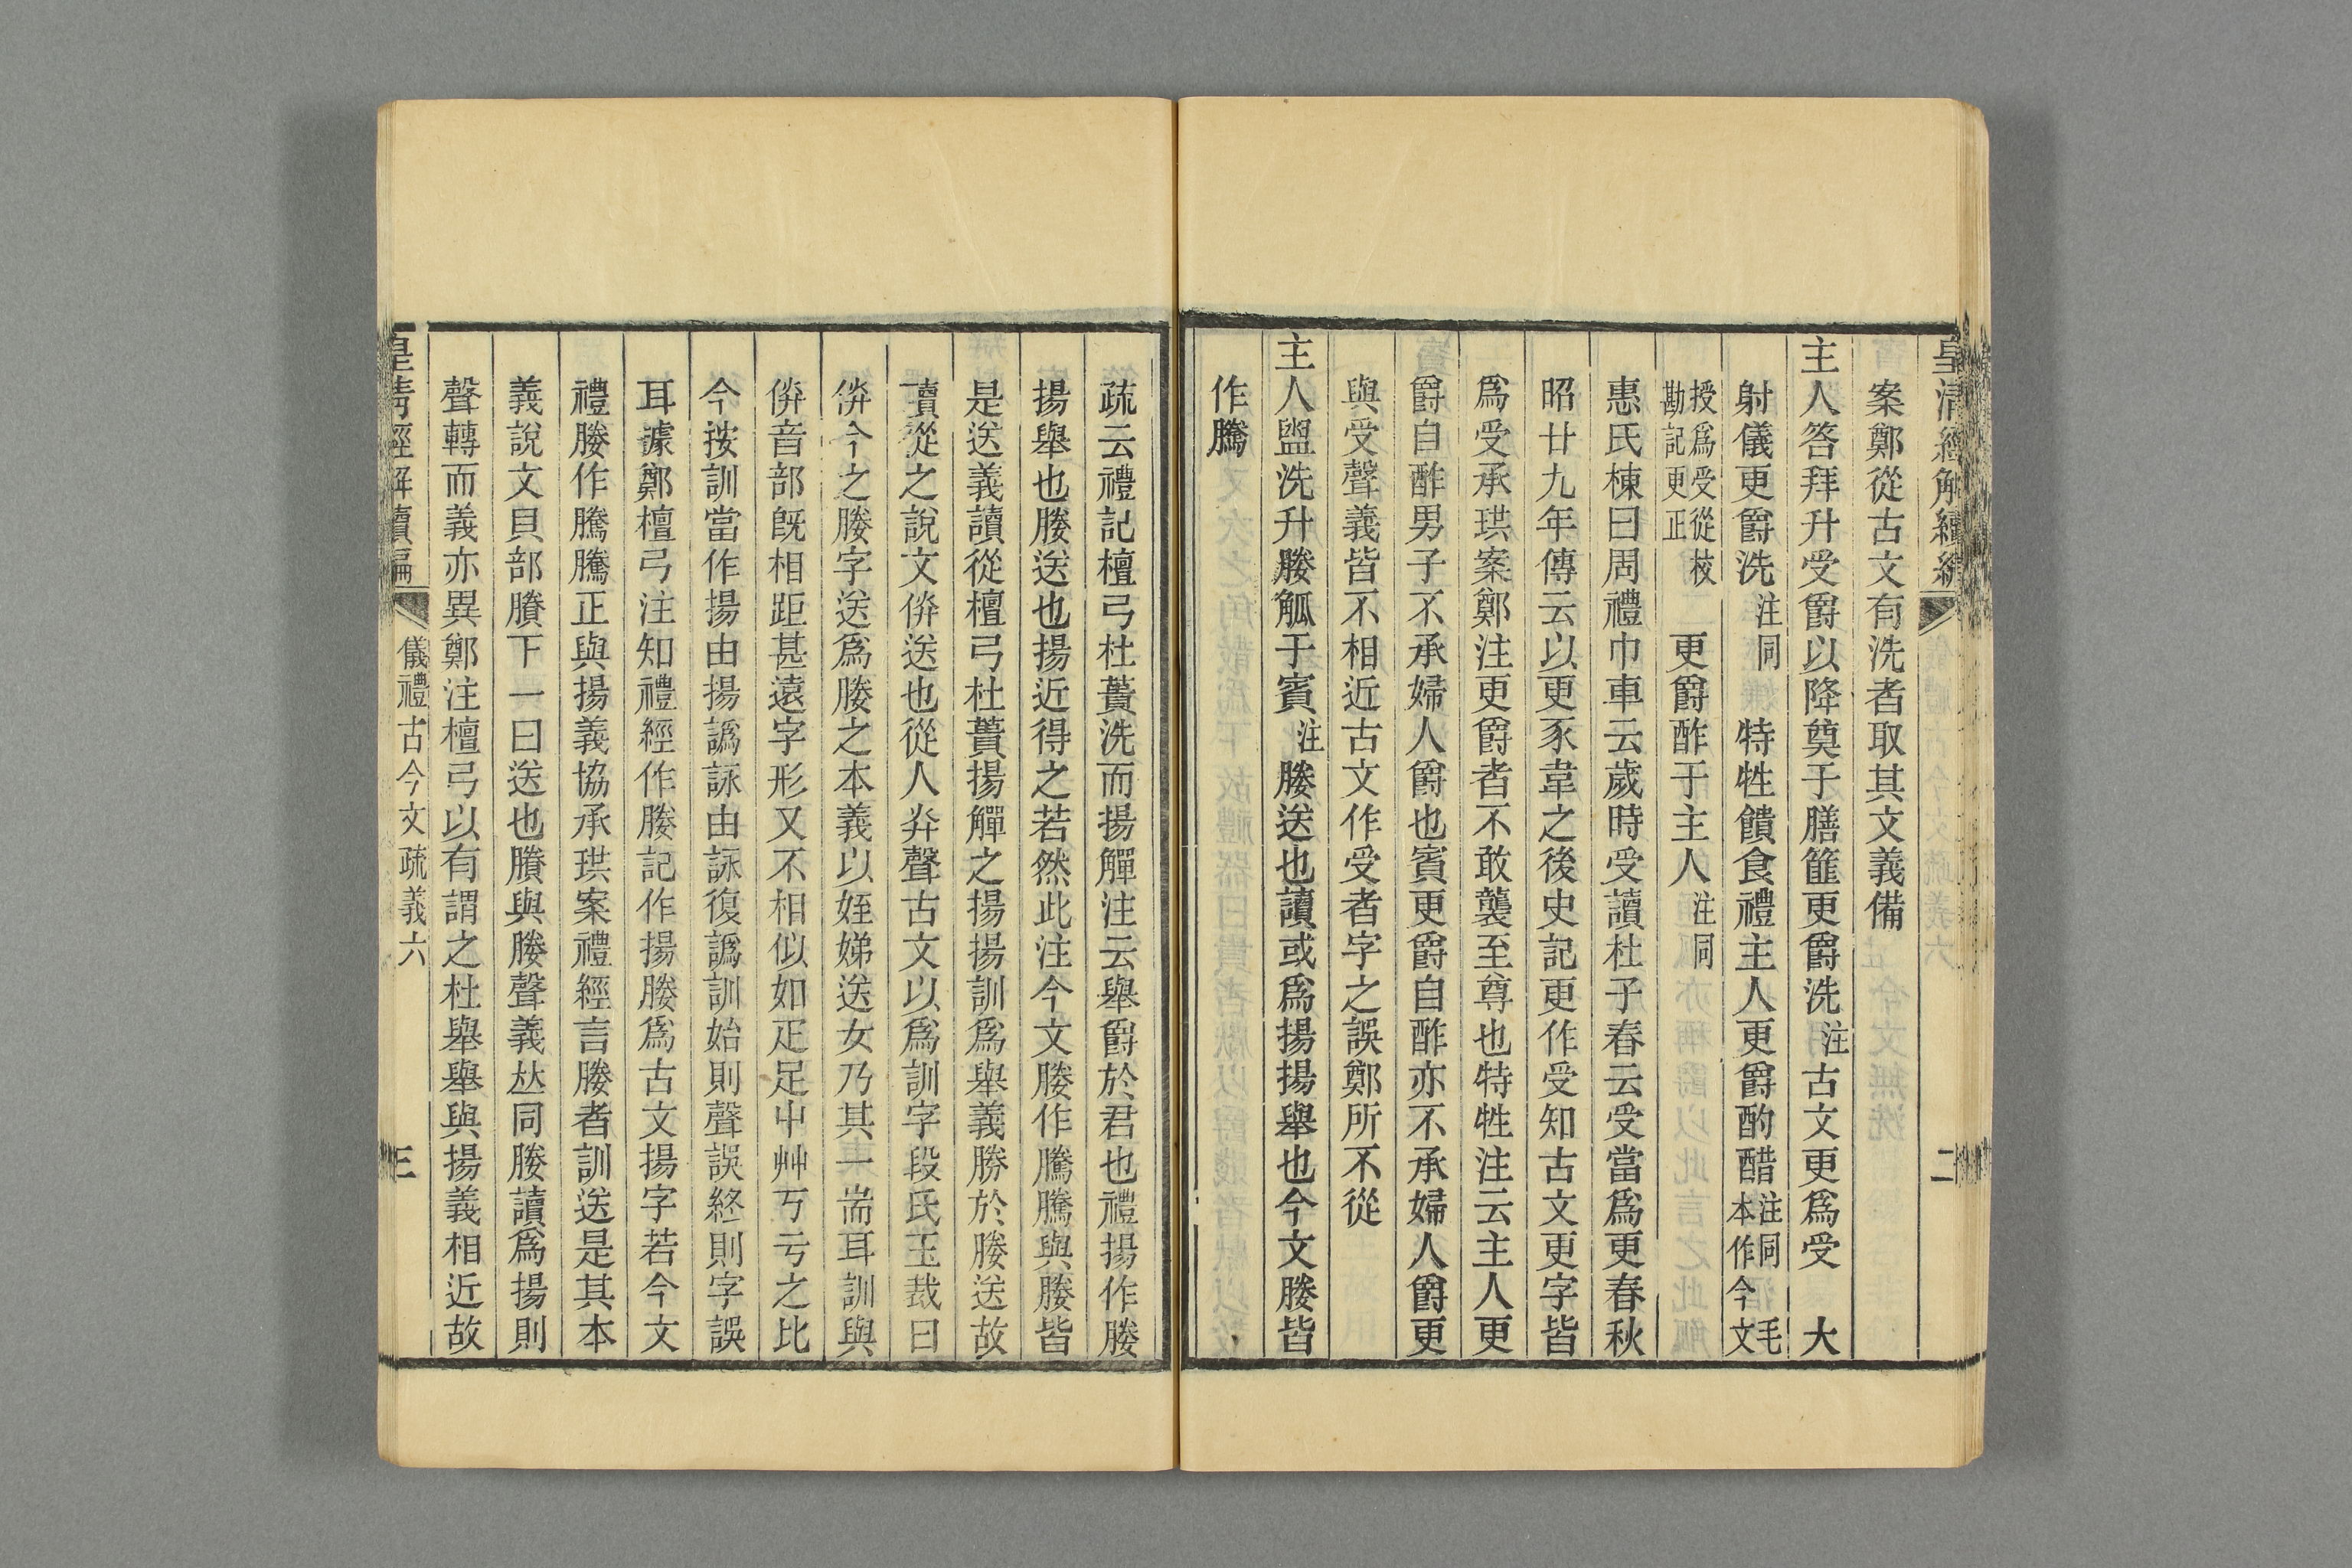 皇清經解續編
二
案鄭從古文有洗者取其文義備
主人答拜升受爵以降奠于膳篚更爵洗注古文更爲受　大
射儀更爵洗注同　特牲饋食禮主人更爵酌醋注同毛本作今文
授爲受從校勘記更正　更爵酢于主人注同
惠氏棟曰周禮巾車云歲時受讀杜子春云受當爲更春秋
昭廿九年傳云以更豕韋之後史記更作受知古文更字皆
爲受承珙案鄭注更爵者不敢襲至尊也特牲注云主人更
爵自酢男子不承婦人爵也賓更爵自酢亦不承婦人爵更
與受聲義皆不相近古文作受者字之誤鄭所不從
主人盥洗升媵觚于賓注媵送也讀或爲揚揚舉也今文媵皆
作騰
疏云禮記檀弓杜蕢洗而揚觶注云舉爵於君也禮揚作媵
揚舉也媵送也揚近得之若然此注今文媵作騰騰與媵皆
是送義讀從檀弓杜蕢揚觶之揚揚訓爲舉義勝於媵送故
讀從之說文倂送也從人灷聲古文以爲訓字段氏玉裁曰
倂今之媵字送爲媵之本義以姪娣送女乃其一耑耳訓與
倂音部旣相距甚遠字形又不相似如疋足屮艸丂亏之比
今按訓當作揚由揚譌詠由詠復譌訓始則聲誤終則字誤
耳據鄭檀弓注知禮經作媵記作揚媵爲古文揚字若今文
禮媵作騰騰正與揚義協承珙案禮經言媵者訓送是其本
義說文貝部賸下一曰送也賸與媵聲義𠀤同媵讀爲揚則
聲轉而義亦異鄭注檀弓以有謂之杜舉舉與揚義相近故
皇清經解續編
儀禮古今文疏義六
三